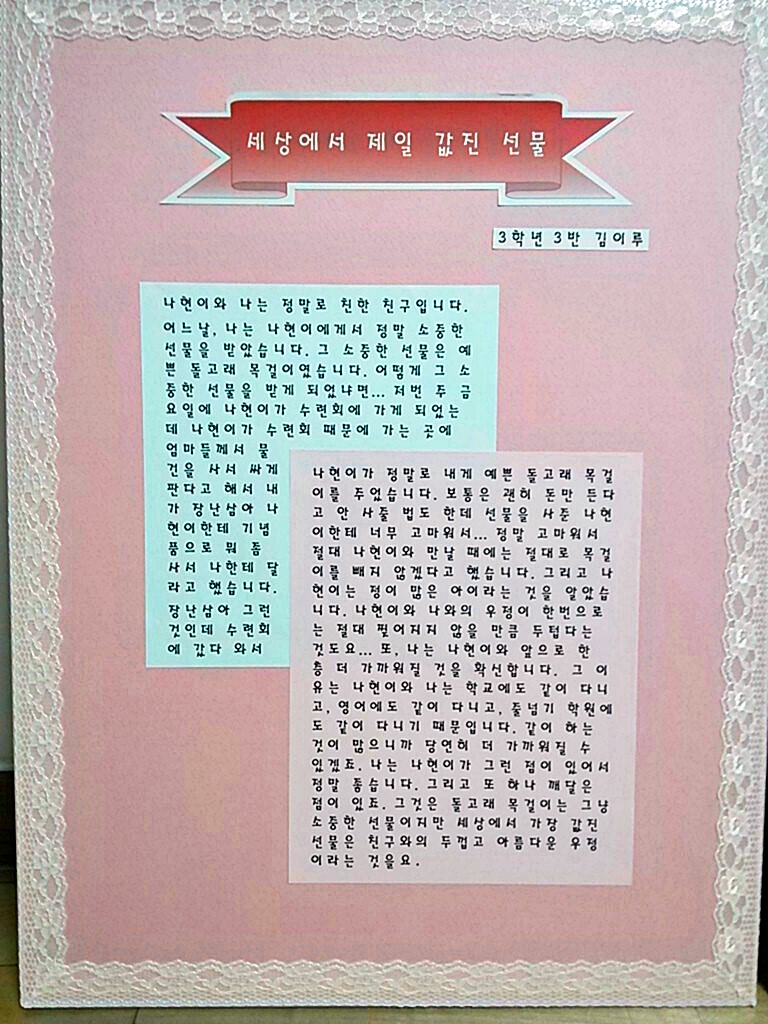 세상에서 제일 값진 선물
3학년 3반 김이루
나현이와 나는 정말로 친한 친구입니다.
어느날, 나는 나현이에게서 정말 소중한
선물을 받았습니다. 그 소중한 선물은 예
쁜 돌고래 목걸이였습니다. 어떻게 그 소
중한 선물을 받게 되었냐면... 저번 주 금
요일에 나현이가 수련회에 가게 되었는
데 나현이가 수련회 때문에 가는 곳에
엄마들께서 물
건을 사서 싸게
판다고 해서 내
가 장난삼아 나
현이한테 기념
품으로 뭐 좀
사서 나한테 달
라고 했습니다.
장난삼아 그런
것인데 수련회
에 갔다 와서
나현이가 정말로 내게 예쁜 돌고래 목걸
이를 주었습니다. 보통은 괜히 돈만 든다
고 안 사줄 법도 한데 선물을 사준 나현
이한테 너무 고마워서... 정말 고마워서
절대 나현이와 만날 때에는 절대로 목걸
이를 빼지 않겠다고 했습니다. 그리고 나
현이는 정이 많은 아이라는 것을 알았습
니다. 나현이와 나와의 우정이 한번으로
는 절대 찢어지지 않을 만큼 두텁다는
것도요... 또, 나는 나현이와 앞으로 한
층 더 가까워질 것을 확신합니다. 그 이
유는 나현이와 나는 학교에도 같이 다니
고, 영어에도 같이 다니고, 줄넘기 학원에
도 같이 다니기 때문입니다. 같이 하는
것이 많으니까 당연히 더 가까워질 수
있겠죠. 나는 나현이가 그런 점이 있어서
정말 좋습니다. 그리고 또 하나 깨달은
점이 있죠. 그것은 돌고래 목걸이는 그냥
소중한 선물이지만 세상에서 가장 값진
선물은 친구와의 두껍고 아름다운 우정
이라는 것을요.